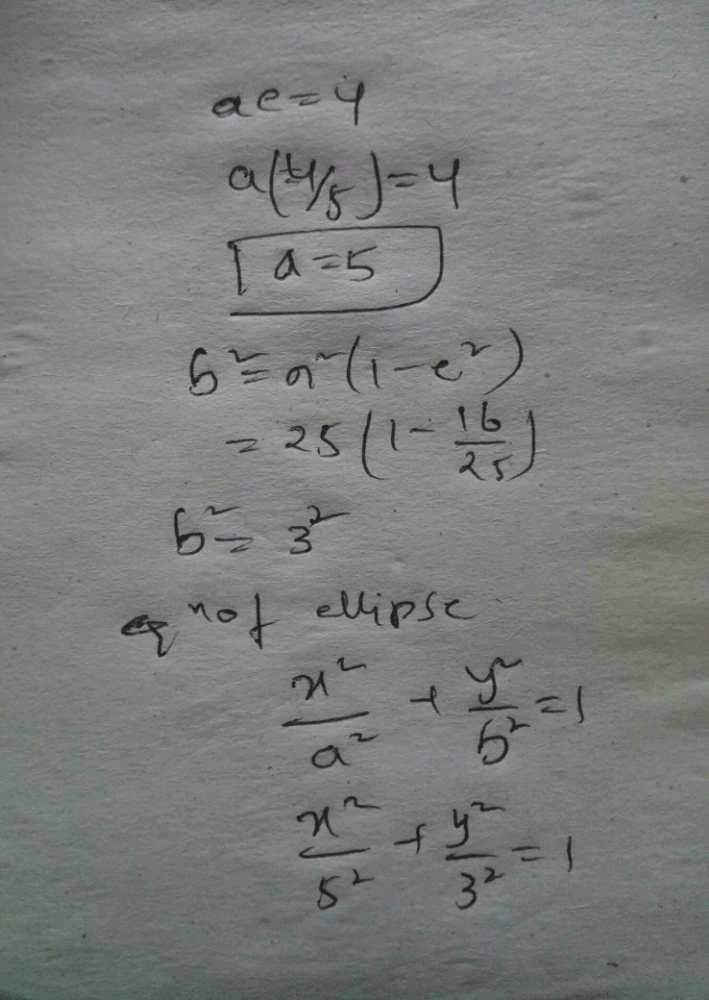 ae=4
a(4/5)=4
a=5
b²=a²(1-e²)
=25(1-16/25)
b²=3²
eqⁿ of ellipse
x²/a² + y²/b² =1
x²/5² + y²/3² =1